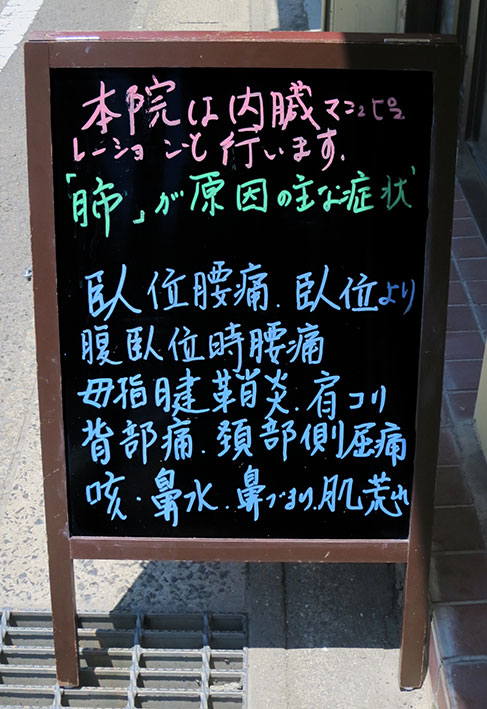 本院は内臓マニピュ
レーションも行います.
「肺」が原因の主な症状
臥位腰痛.臥位より
腹臥位時腰痛
母指腱鞘炎.肩コリ
背部痛.頚部側屈痛
咳.鼻水.鼻づまり.肌荒れ